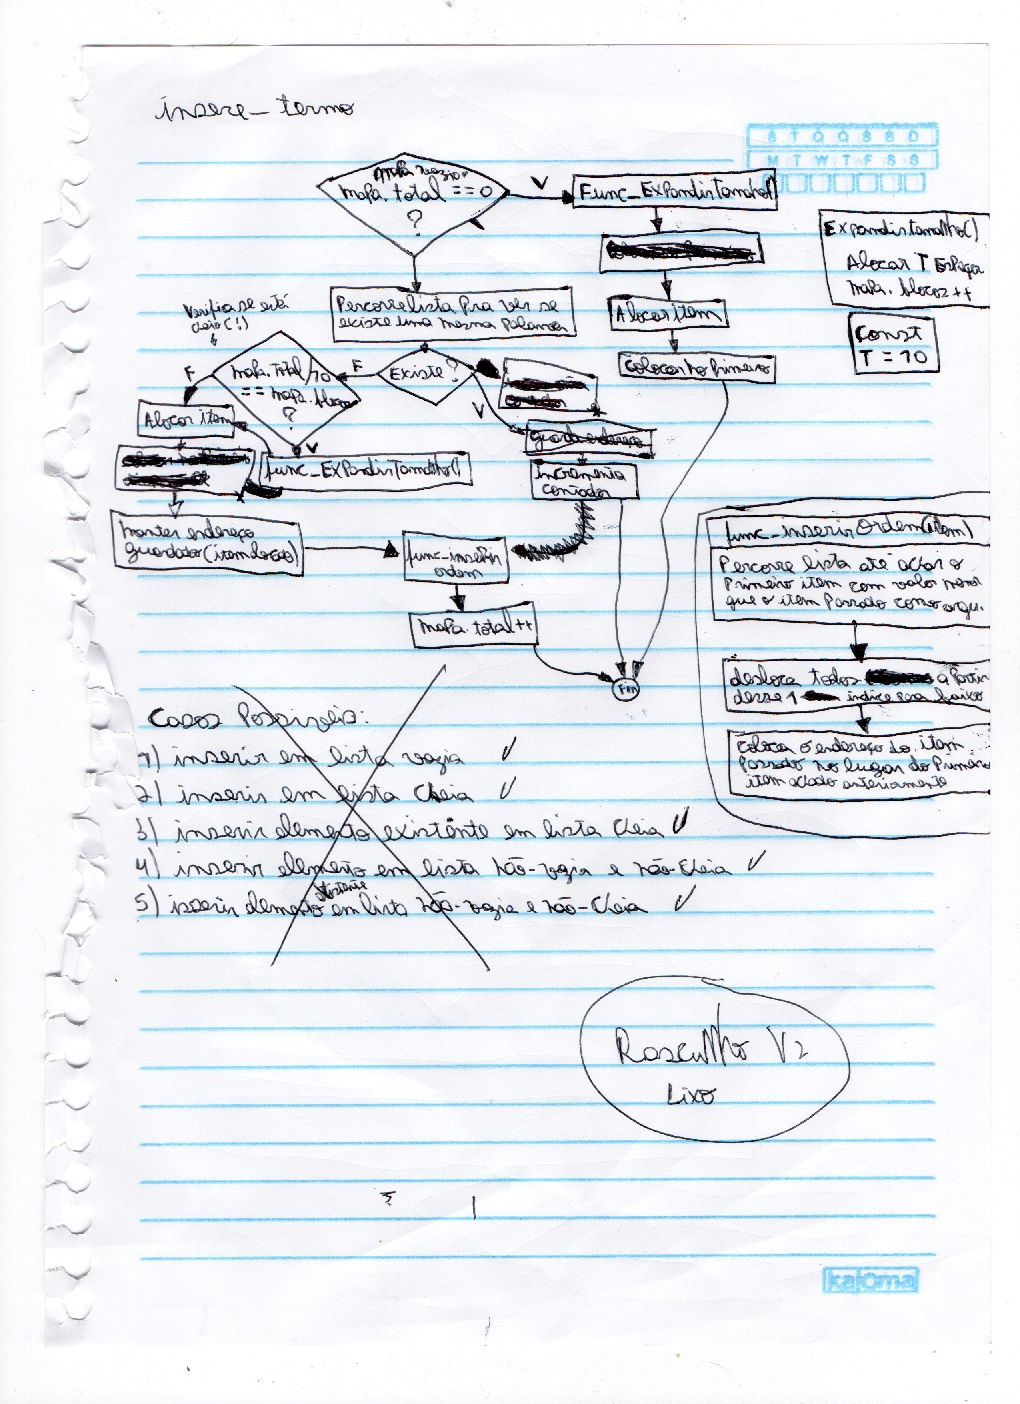 insere_termo
S T Q Q S S D
M T W T F S S
mapa.total == 0
?
V
Func_ExpandirTamanho()
ExpandirTamanho()
Alocar T Espaços
mapa.blocos++
Const
T = 10
Alocar item
Colocar no primeiro
Percorre lista pra ver se
existe uma mesma palavra
Verifica se está
cheio(!)
Existe?
F
V
mapa.total/10
== mapa.blocos
?
F
V
Alocar item
func_ExpandirTamanho()
guarda endereço
incrementa
contador
manter endereço
guardado
func_inserir
ordem
mapa.total++
Fim
func_inserirOrdem(item)
Percorre lista até achar o
Primeiro item com valor menor
que o item Passado como argu.
desloca todos a Partir
desse índice baixo
colocar o endereço do item
Passado no lugar do Primeiro
item achado anteriormente
Casos Possíveis:
1) inserir em lista vazia ✓
2) inserir em lista cheia ✓
3) inserir elemento existente em lista cheia ✓
4) inserir elemento em lista não-vazia e não-cheia ✓
existente
5) inserir elemento em lista não-vazia e não-cheia ✓
Rascunho V2
Lixo
kajoma